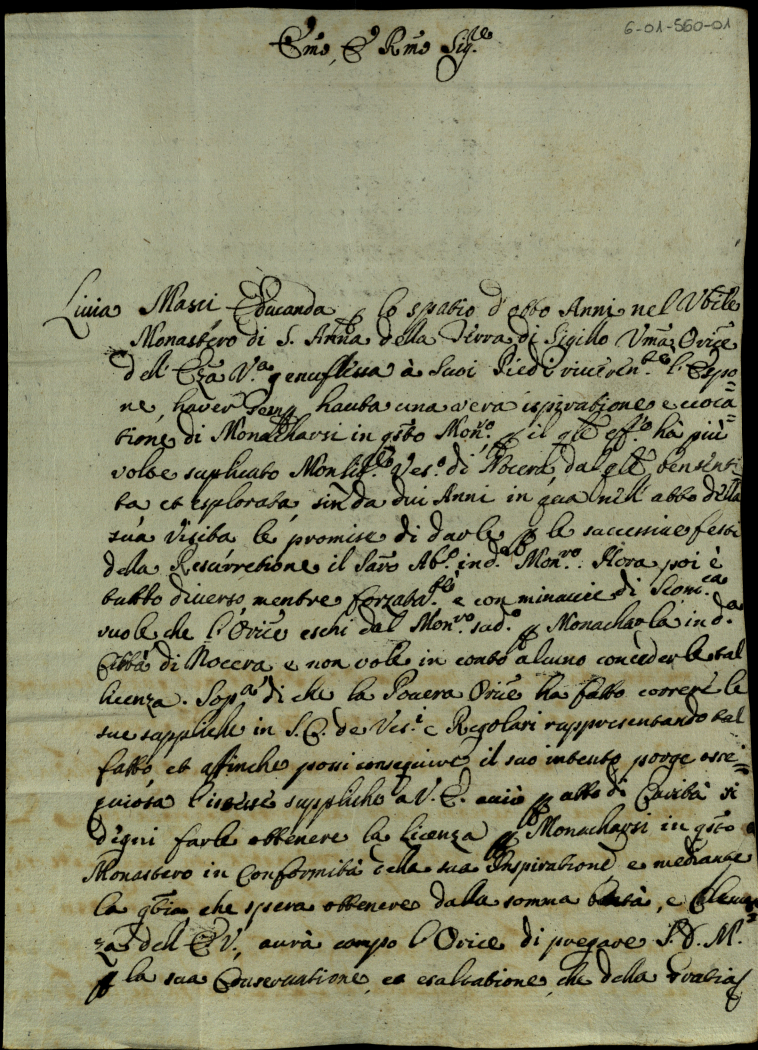 6-01-560-01
Emo, e Rmo Sig.re
Livia Masci Educanda p lo spatio d'otto Anni nel Vble
Monastero di S. Anna della Terra di Sigillo Vma Orice
dell'Eza V.a genuflessa à Suoi Piedi riveren.te l'Espo=
ne, haver semp hauta una vera ispiratione e voca=
tione di Monacharsi in qsto Mon.ro p il qle eff.to hà più
volte suplicato Monsig.re Ves.o di Nocera, dal qle, ben senti
ta et esplorata sin da dui Anni in qua nell'atto della
sua Visita le promise di darle p le successive feste
della Resurretione il Saro Ab.o in d.o Mon.ro. Hora poi è
tutto diverso, mentre forzata.te e con minaccie di Scom.ca
vuole che l'Orice eschi dal Mon.ro sud.o p Monacharla in d.a
Città di Nocera e non vole in conto alcuno concederle tal
licenza. Sop.a di che la Povera Orice ha fatto correre le
sue suppliche in S. C. de Ves.i e Regolari rappresentando tal
fatto, et affinche possi conseguire il suo intento porge osse=
quiosa l'istesse suppliche à V. E. acciò p atto di Carità si
degni farle ottenere la licenza p Monacharsi in qsto
Monastero in Conformità della sua Inspiratione e mediante
la qtia che spera ottenere dalla somma bontà, e Clemen
za dell'E V., avrà campo l'Orice di pregare S. D. M.
p la sua Conservatione, et esaltatione, che della gratia